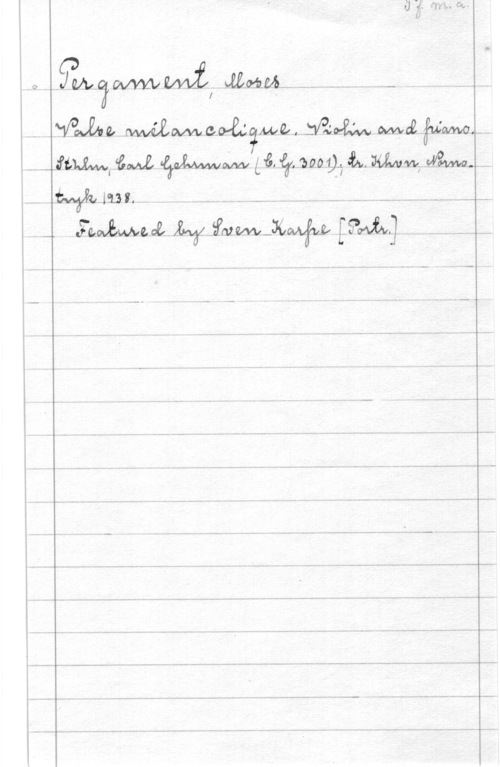 Pergament, Moses
Valse mélancolique. Violin and piano.
Sthlm, Carl Gehrmann (C. G. 3001); tr. Khvn, Norno-
tryk 1938.
Featured by Sven Karpe [Portr.]